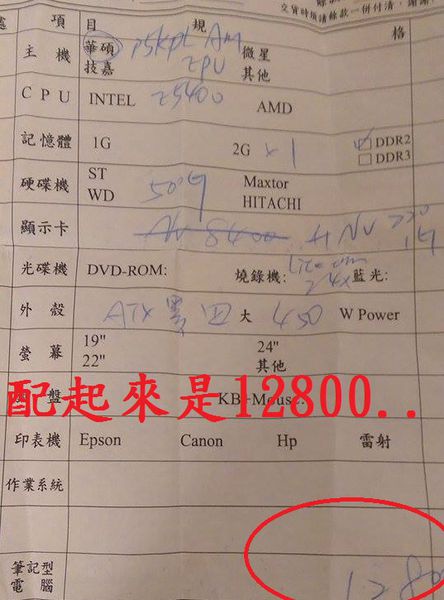 交貨時煩請餘款一併付清，謝謝
項 目 規 格
主 機 華碩 P5KPL AM 微星
技嘉 EPU 其他
CPU INTEL E5400 AMD
記憶體 1G 2G x1 DDR2
DDR3
硬碟機 ST 500G Maxtor
WD HITACHI
顯示卡 8400 NV 1G
光碟機 DVD-ROM: 燒錄機: Liteon 24x 藍光:
外 殼 ATX 黑 大 450 W Power
螢 幕 19" 24"
22" 其他
盤 KB+Mouse:
配起來是12800..
印表機 Epson Canon Hp 雷射
作業系統
筆記型
電 腦 1280